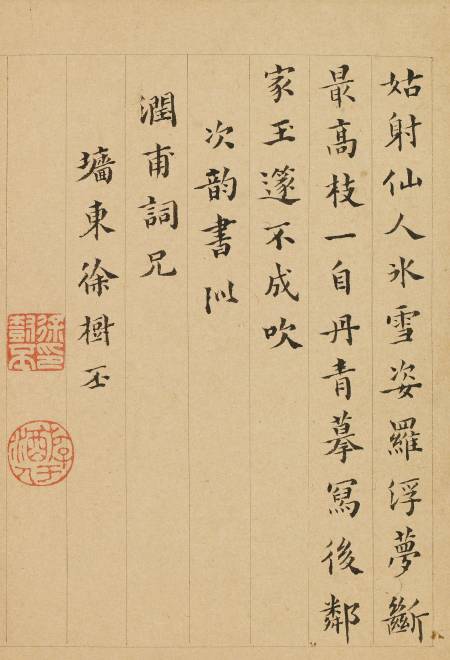 姑射仙人氷雪姿羅浮夢斷
最高枝一自丹青摹冩後鄰
家玉篴不成吹
次韵書似
潤甫詞兄
墻東徐樹丕
徐樹丕印